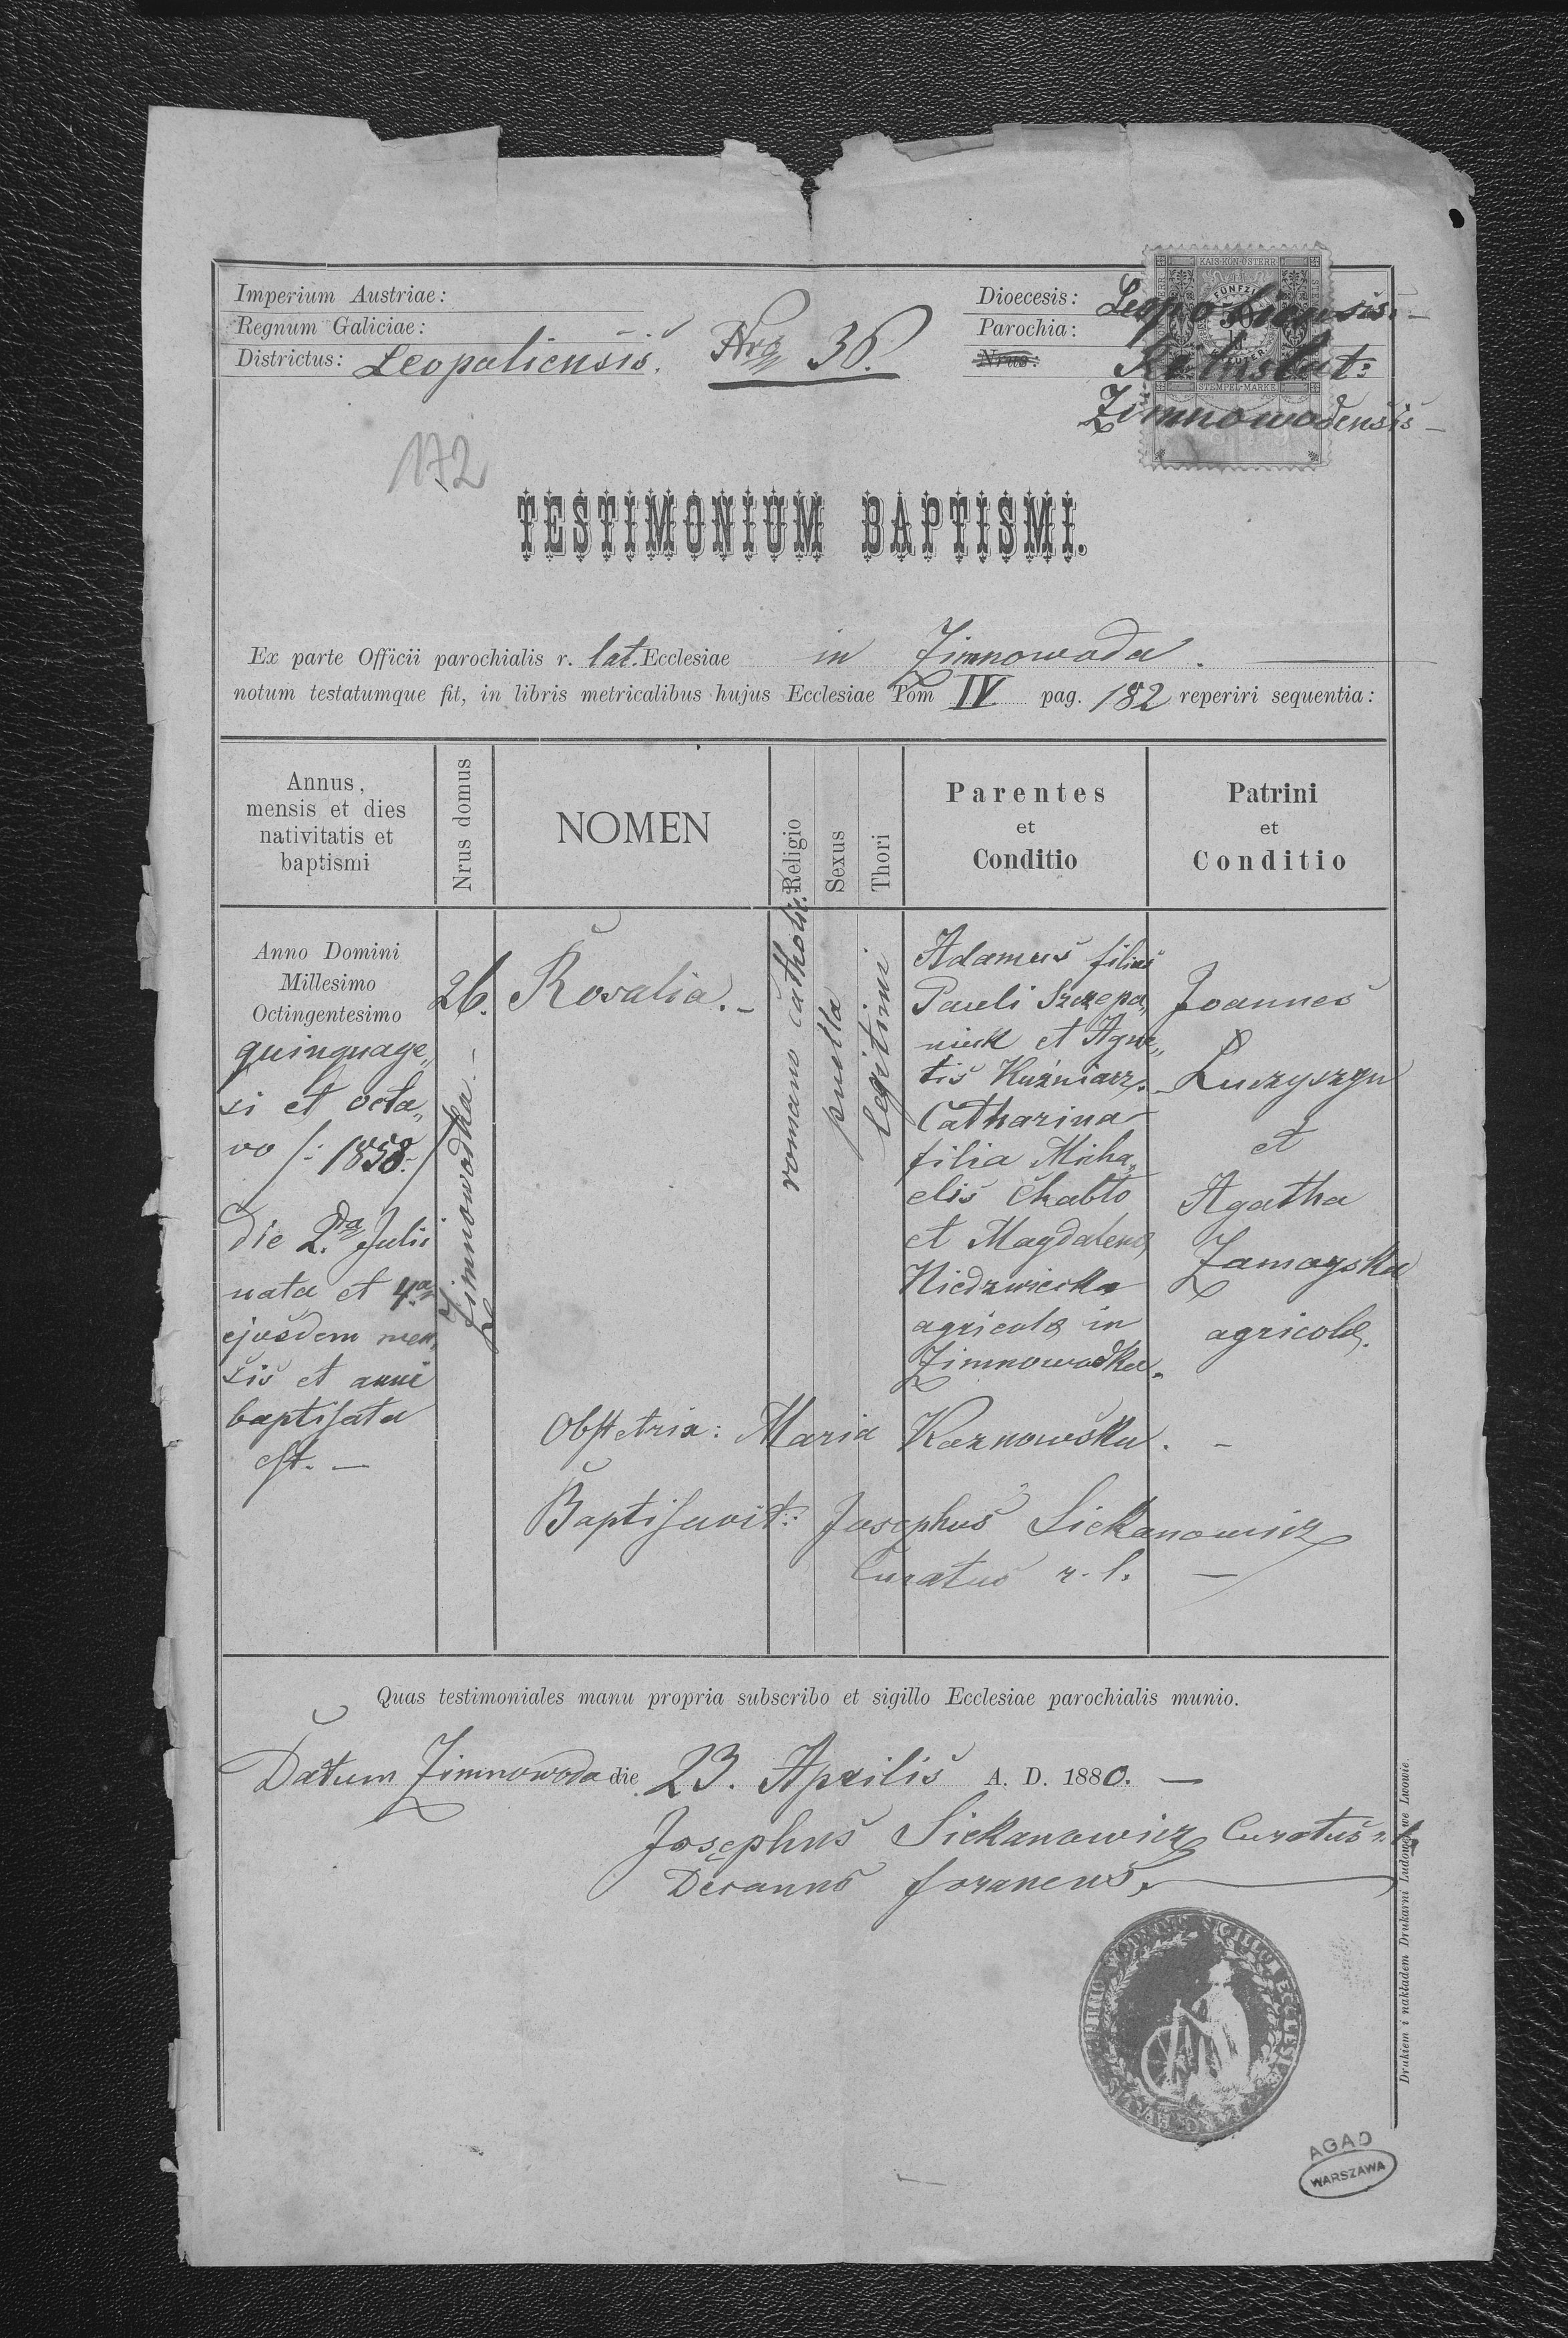 Imperium Austriae:
Regnum Galiciae:
Districtus: Leopoliensis.
Nro 36.
Dioecesis: Leopoliensis. –
Parochia: Rit: lat:
Nrus:
Zimnowodensis –
KAIS. KÖN. ÖSTERR.
FÜNFZIG
50
STEMPEL-MARKE
172
TESTIMONIUM BAPTISMI.
Ex parte Officii parochialis r. lat. Ecclesiae in Zimnowoda.
notum testatumque fit, in libris metricalibus hujus Ecclesiae Tom IV pag. 182 reperiri sequentia:
Annus,
mensis et dies
nativitatis et
baptismi
Nrus domus
NOMEN
Religio
Sexus
Thori
Parentes
et
Conditio
Patrini
et
Conditio
Anno Domini
Millesimo
Octingentesimo
quinquage„
si et octa„
vo /: 1858 :/
die 2.da Julii
nata et 4ta
ejusdem men„
sis et anni
baptisata
est. –
26.
Zimnowodka –
Rosalia. –
romano cathol:
puella
legitimi
Adamus filius
Pauli Szczepa„
niek et Agne„
tis Kuźniarz. –
Catharina
filia Micha„
elis Chabło
et Magdalenæ
Niedzwiecka
agricolæ in
Zimnowodka.
Joannes
Łuczyszyn
et
Agatha
Zamoyska
agricolæ.
Obstetrix: Maria Karnowska. –
Baptisavit: Josephus Siekanowicz
Curatus r. l. –
Quas testimoniales manu propria subscribo et sigillo Ecclesiae parochialis munio.
Datum Zimnowoda die 23. Aprilis A. D. 1880. –
Josephus Siekanowicz Curatus r. l.
Decanus foraneus.
SIGILLUM ECCLESI
Drukiem i nakładem Drukarni Ludowej we Lwowie.
AGAD
WARSZAWA